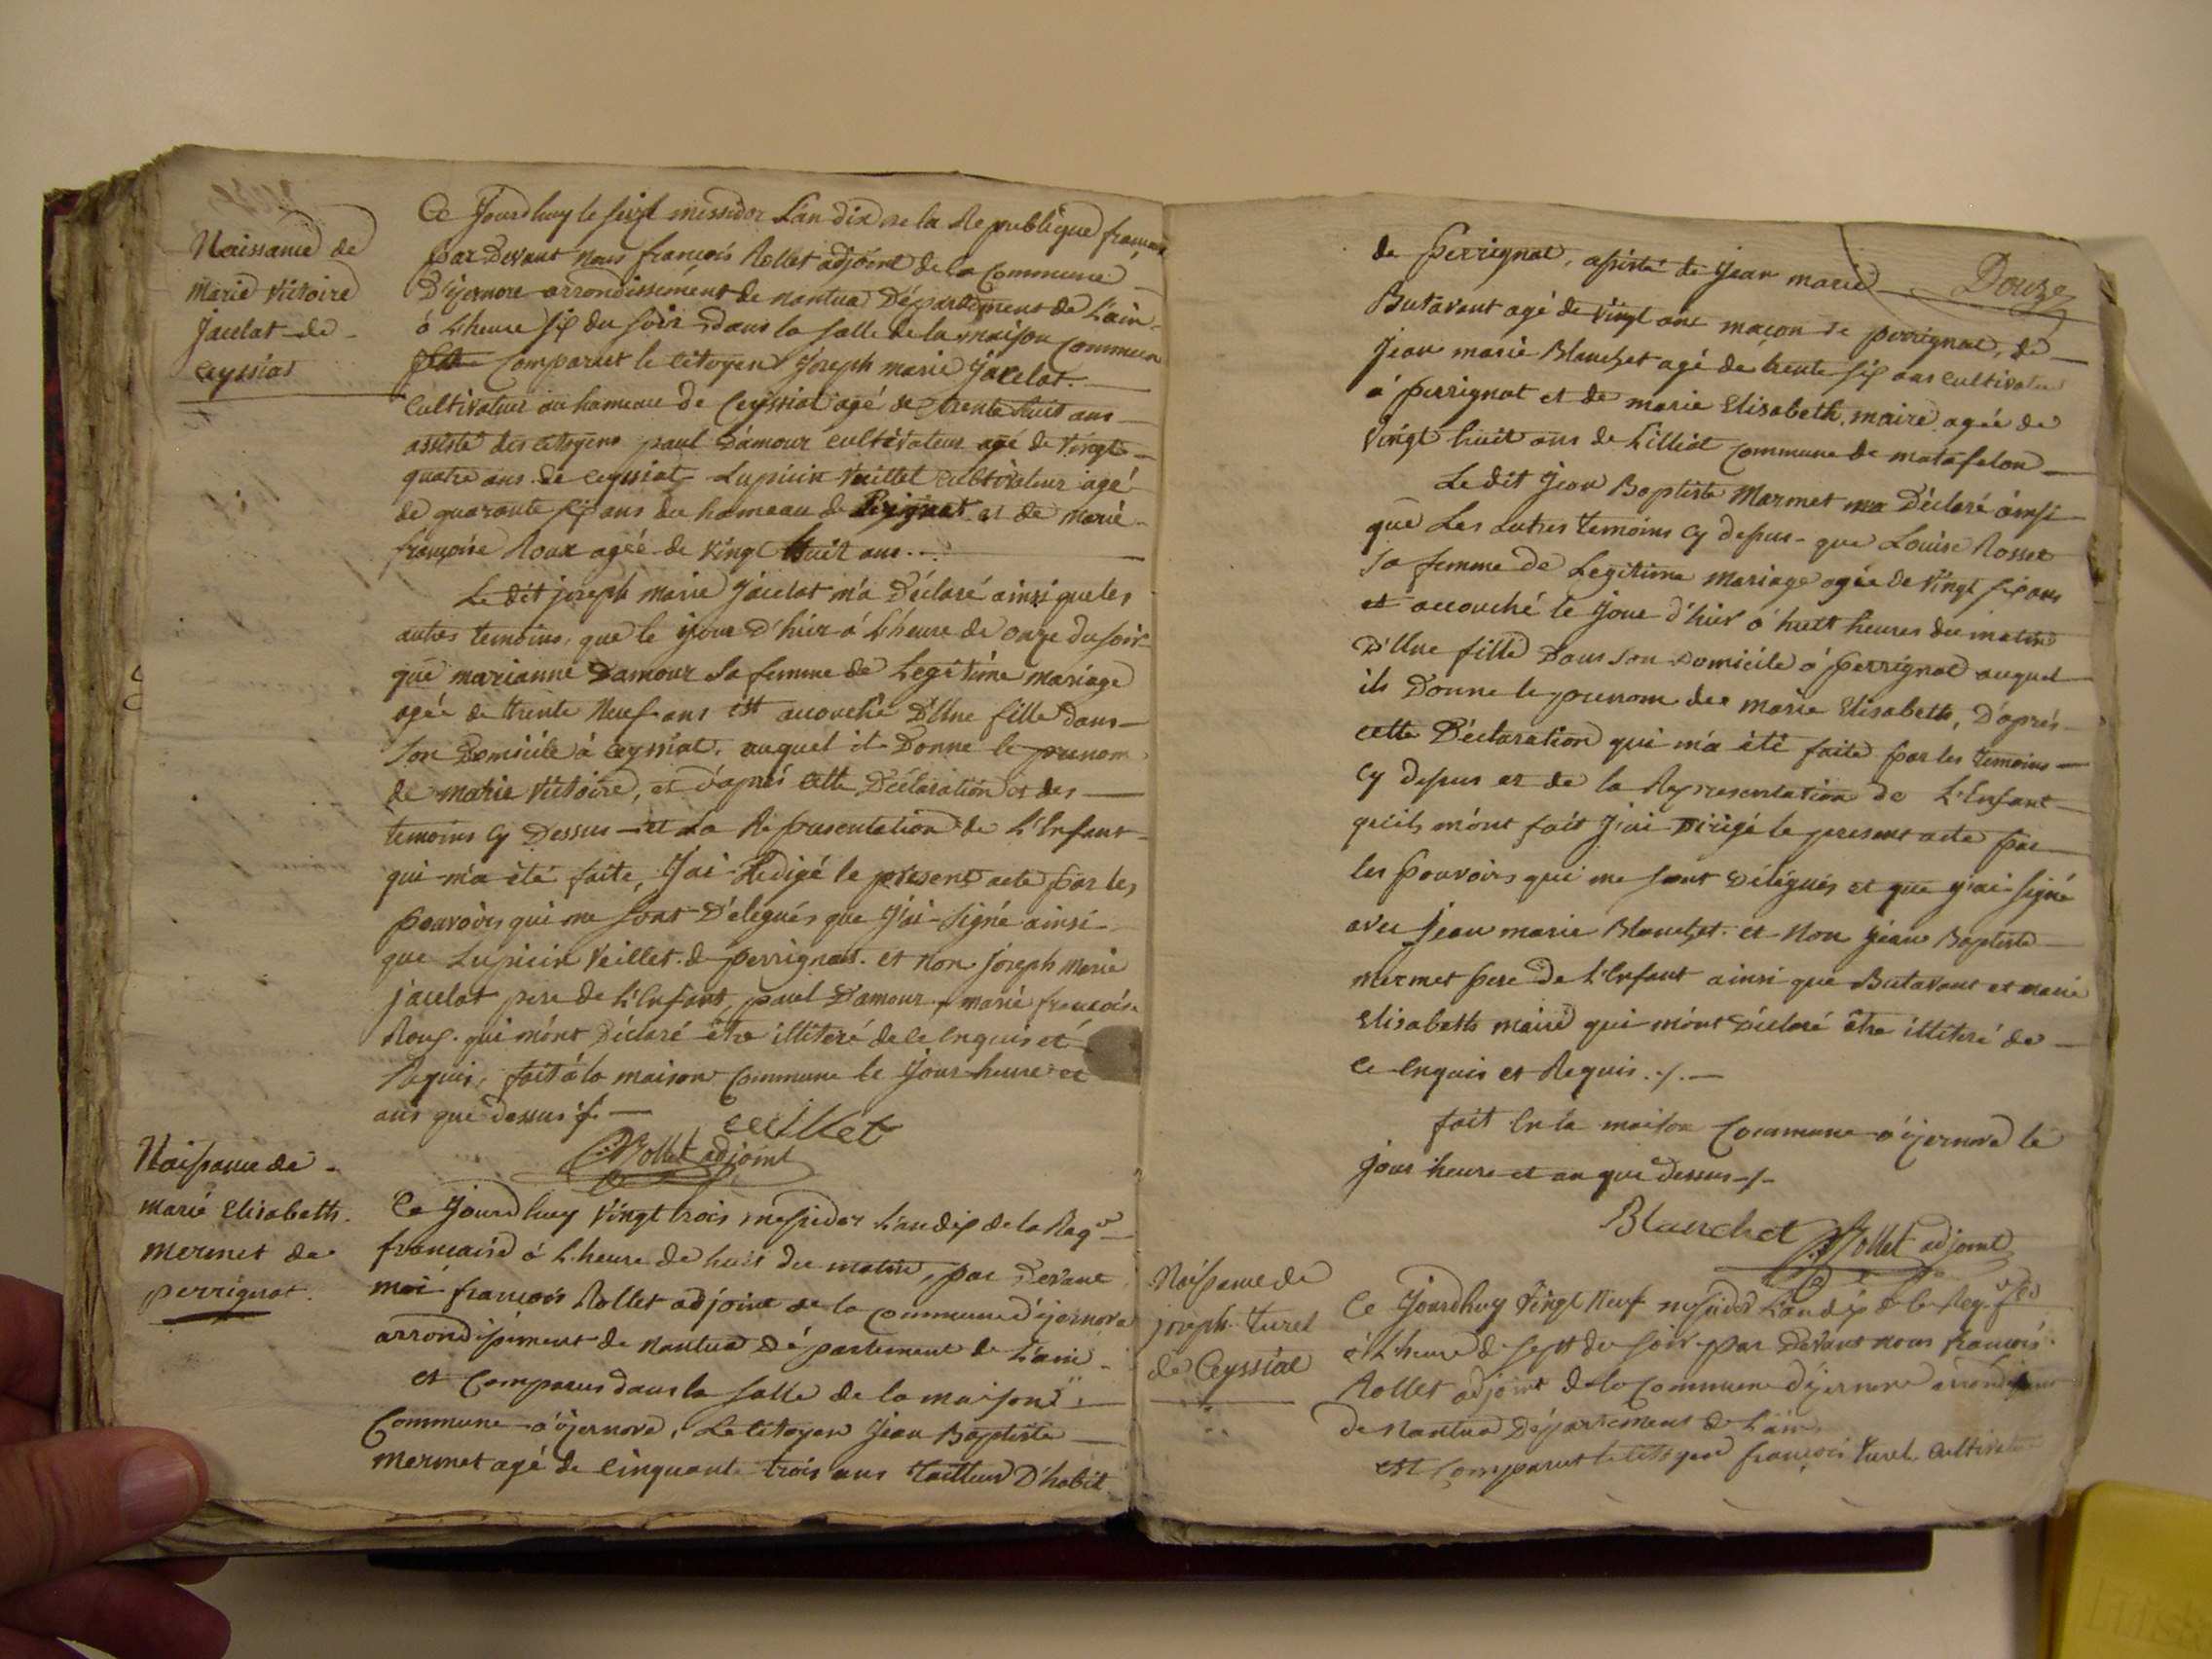 Naissance de
Marie Victoire
Jacelat de
Ceyssiat
Ce Jourdhuy le seize messidor L'an dix de la Republique francaise
par Devant nous francois Rollet adjoint de la Commune
D'izernore arrondissement de nantua Département de L'ain
à L'heure six du soir dans la salle de la maison Commune
Comparut le citoyen Joseph marie Jacelat
Cultivateur au hameau de Ceyssiat agé de trente huit ans
assisté des citoyens paul D'amour cultivateur agé de vingt
quatre ans de ceyssiat Lupicin Veillet cultivateur agé
de quarante six ans du hameau de Perignat et de marie
francoise Roux agée de vingt huit ans
Le dit joseph marie Jacelat m'a Déclaré ainsi que les
autres temoins, que le jour D'hier à L'heure de onze du soir
que marianne Damour sa femme de Legitime mariage
agée de trente neuf ans est accouchée D'Une fille dans
son Domicile à ceyssiat, auquel il Donne le prenom
de marie victoire, et d'aprés cette Déclaration et des
temoins cy Dessus et La Representation de L'Enfant
qui m'a été faite, J'ai Redigé le present acte par les
pouvoirs qui me sont D'elegués que J'ai signé ainsi
que Lupicin Veillet de perrignat et non joseph marie
jacelat pere de L'Enfant, paul D'amour, marie francoise
Roux qui m'ont Déclaré etre illiteré de ce enquis et
Requis, fait à la maison Commune le Jour heure et
ans que dessus ./.
veillet
Rollet adjoint
Naissance de
marie Elisabeth
mermet de
perrignat
Ce Jourdhuy vingt trois messidor L'an dix de la Repu
francaise à L'heure de huit du matin, par Devant
moi francois Rollet adjoint de la commune d'izernore
arrondissement de nantua Département de L'ain
et Comparus dans la salle de la maison
Commune d'izernore, Le citoyen Jean Baptiste
mermet agé de cinquante trois ans tailleur D'habit
Douze
de perrignat, assisté de Jean marie
Butavant agé de vingt ans maçon de perrignat, de
Jean marie Blanchet agé de trente six ans cultivateur
à perrignat et de marie Elisabeth maire agée de
vingt huit ans de Lilliat commune de matafelon
Le dit Jean Baptiste Marmet ma Déclaré ainsi
que Les autres temoins cy dessus que Louise Rosset
sa femme de Legitime mariage agée de vingt six ans
est accouché le jour d'hier à huit heures du matin
D'Une fille Dans son Domicile à perrignat auquel
ils Donne le prenom de marie Elisabeth, D'aprés
cette Déclaration qui m'a été faite par les temoins
cy dessus et de la Representation de L'Enfant
qu'ils m'ont fait J'ai Dirigé le present acte par
les pouvoirs qui me sont Délégués et que j'ai signé
avec Jean marie Blanchet et non Jean Baptiste
mermet pere de L'Enfant ainsi que Butavant et marie
Elisabeth maire qui m'ont Déclaré être illiteré de
ce enquis et Requis ./.
fait En la maison Commune d'izernore le
jour heure et an que dessus ./.
Blanchet Rollet adjoint
Naissance de
joseph turel
de Ceyssiat
Ce Jourdhuy vingt neuf messidor L'an dix de la Rep. fse
à L'heure de sept du soir par Devant nous francois
Rollet adjoint de la Commune d'izernore arrondissement
de Nantua Département de L'ain
est Comparut le citoyen francois turel, cultivateur